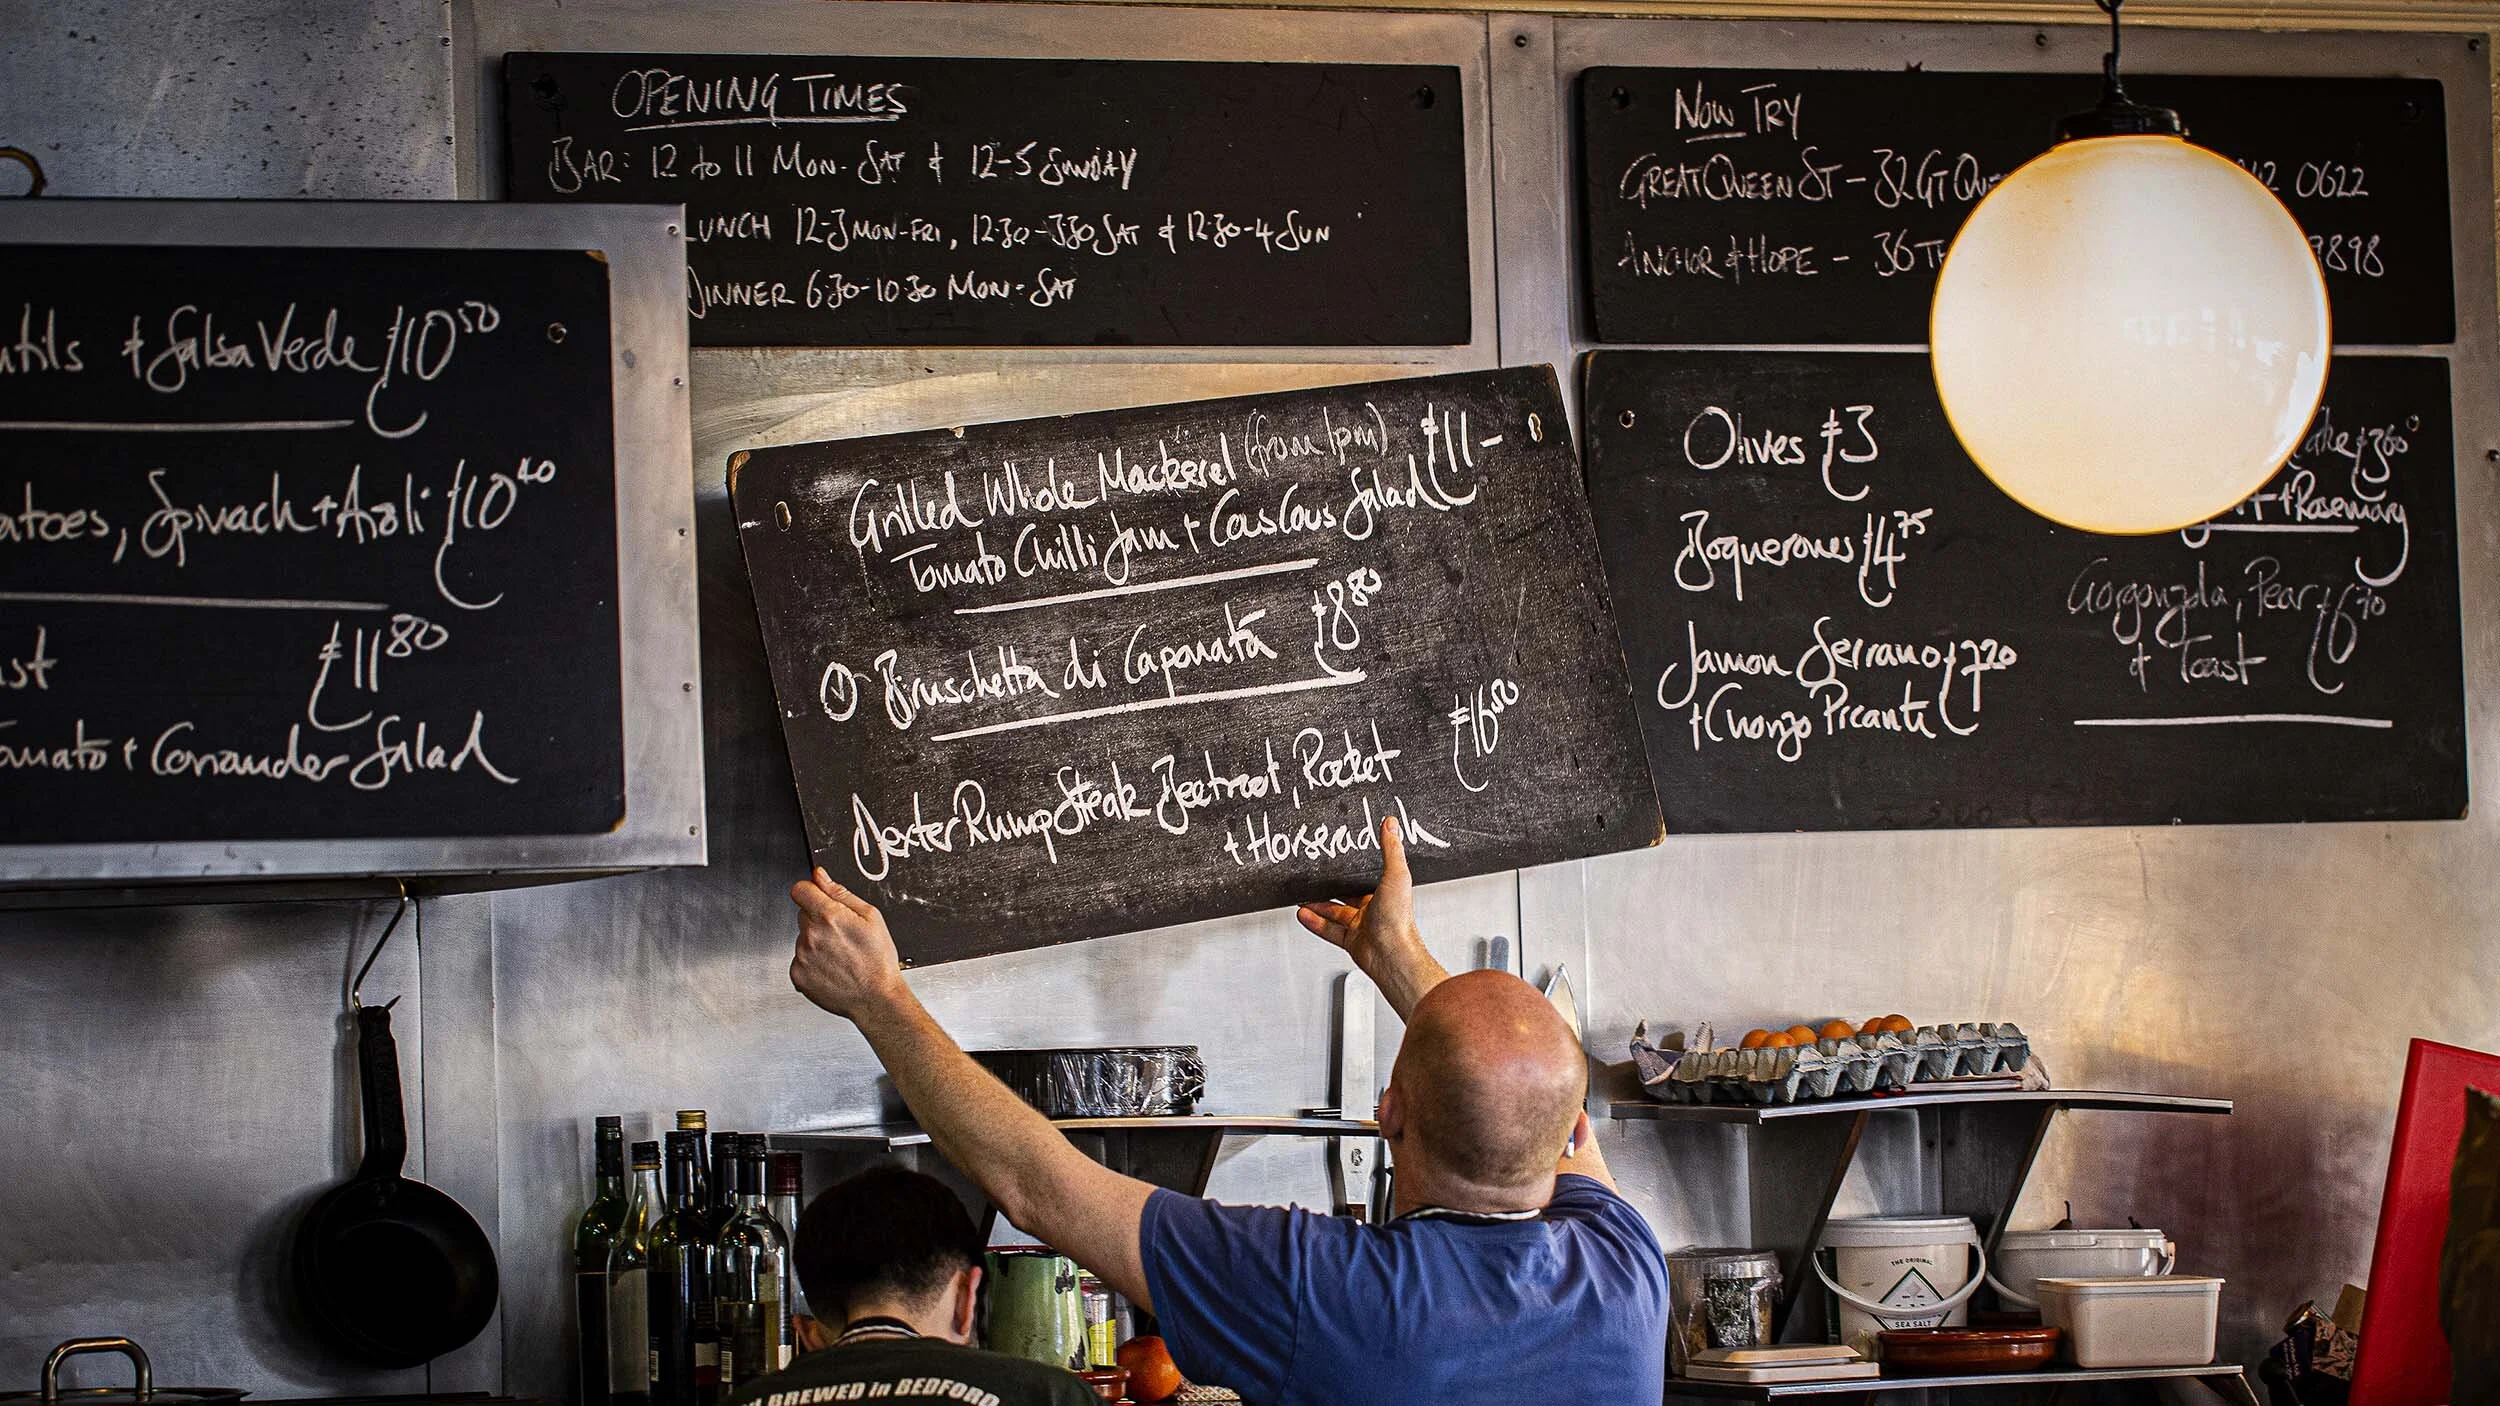 OPENING TIMES
BAR: 12 to 11 MON-SAT & 12-5 SUNDAY
LUNCH 12-3 MON-FRI, 12.30-3.30 SAT & 12.30-4 SUN
DINNER 6.30-10.30 MON-SAT
NOW TRY
GREAT QUEEN ST - 32 GT 0622
ANCHOR & HOPE - 36 9898
& Salsa Verde £10 50
Spinach + Aioli £10 40
£11 80
+ Coriander Salad
Grilled Whole Mackerel (from 1pm) £11-
Tomato Chilli Jam + Cous Cous Salad
Bruschetta di Caponata £8 80
Dexter Rump Steak Beetroot, Rocket £16 80
+ Horseradish
Olives £3
Boquerones £4 75
Jamon Serrano £7 20
+ Chorizo Picante
£3 60
+ Rosemary
Gorgonzola, Pear £6 70
& Toast
BREWED in BEDFORD
THE ORIGINAL
SEA SALT